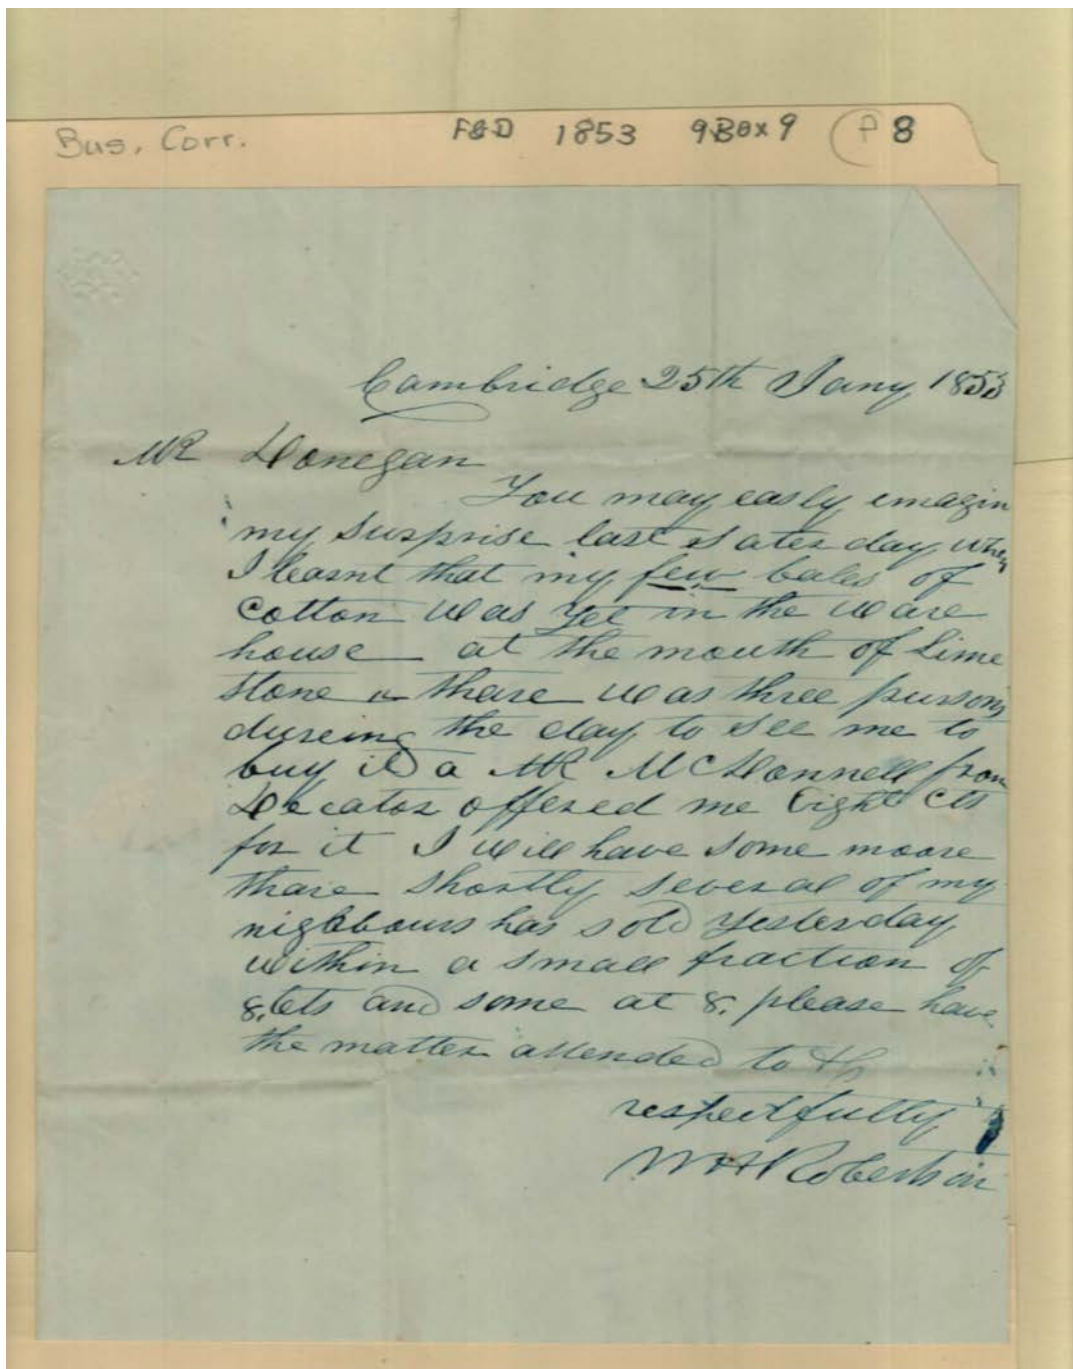 Bus. Corr. F&D 1853 9Box9 P 8
Cambridge 25th Jany 1853
Mr Donegan
You may easly emagin
my surprise last Sater day when
I learnt that my few bales of
Cotton was yet in the ware
house at the mouth of Lime
stone thare was three pursons
dureing the day to see me to
buy it a Mr McDonnell from
Decator offered me Eight cts
for it I will have some moore
thare shortly several of my
nighbours has sold yesterday
within a small fraction of
8 cts and some at 8. please have
the matter attended to
respectfully
WH Robertson